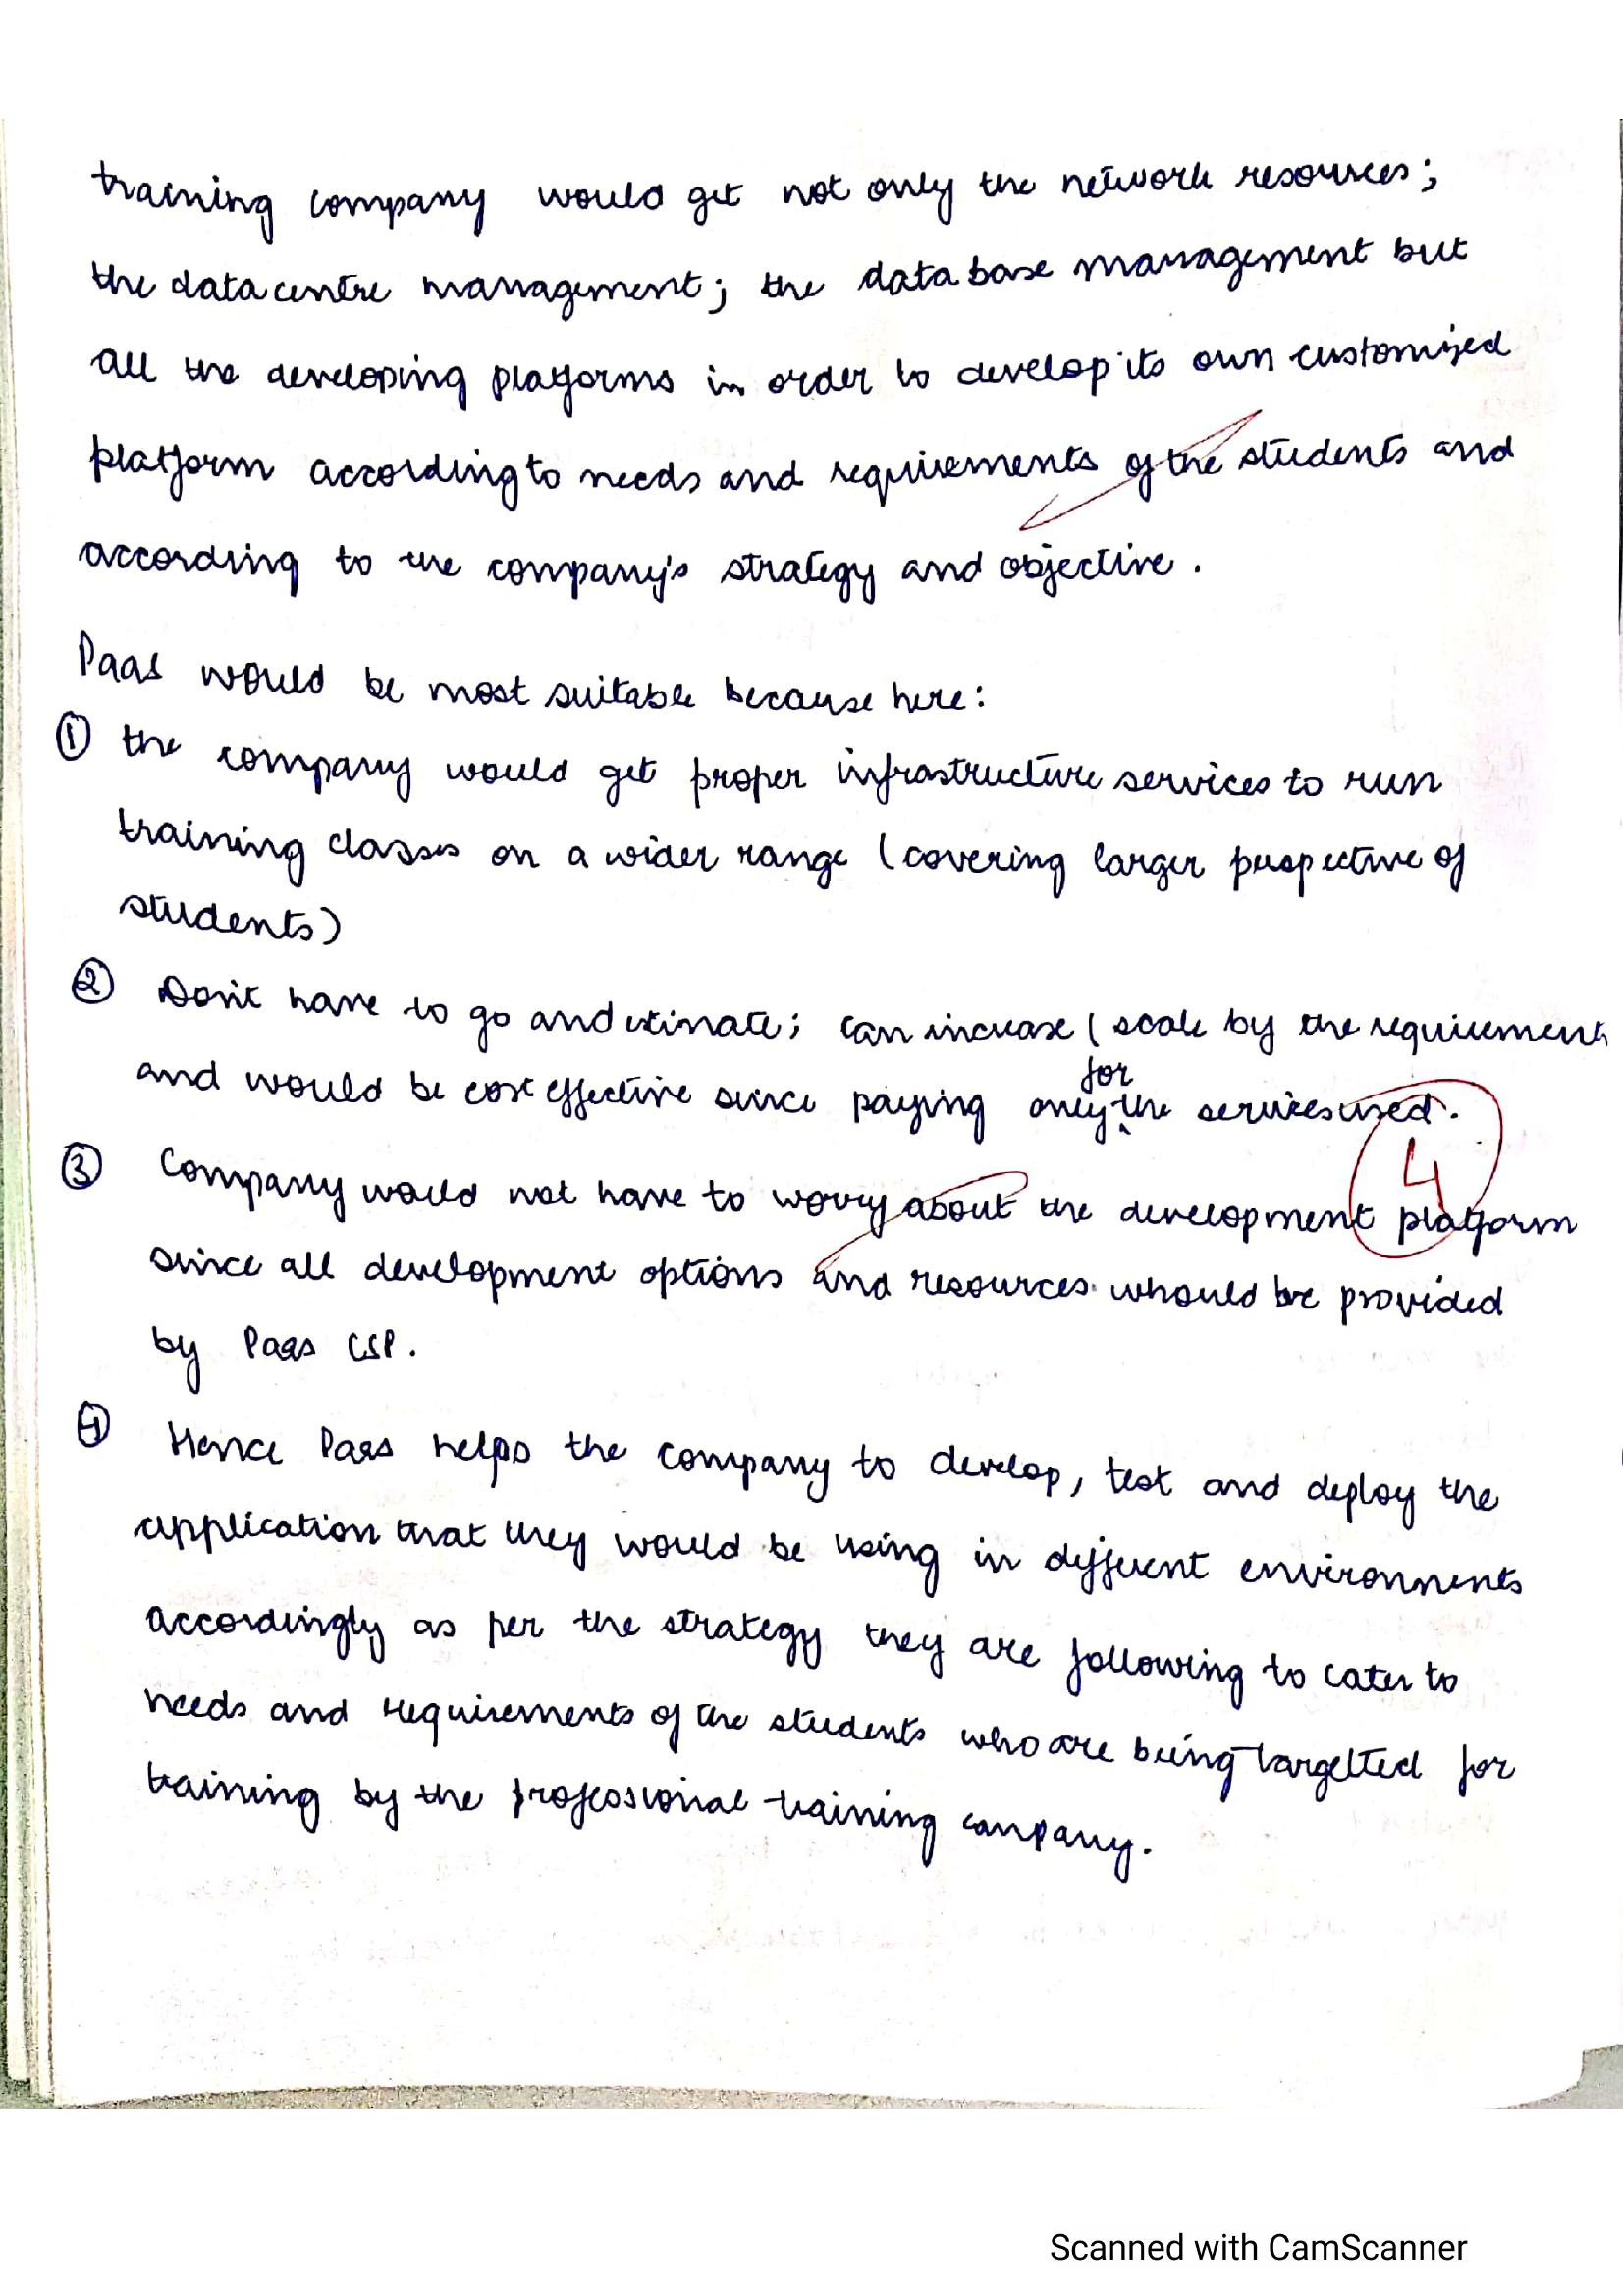 training company would get not only the network resources;
the data centre management; the data base management but
all the developing platforms in order to develop its own customized
platform according to needs and requirements of the students and
according to the company's strategy and objective.
Paas would be most suitable because here:
① the company would get proper infrastructure services to run
training classes on a wider range (covering larger perspective of
students)
② Don't have to go and estimate; can increase (scale by the requirements
and would be cost effective since paying only for the services used.
4
③ Company would not have to worry about the development platform
since all development options and resources whould be provided
by Paas CSP.
④ Hence Paas helps the company to develop, test and deploy the
application that they would be using in different environments
accordingly as per the strategy they are following to cater to
needs and requirements of the students who are being targetted for
training by the professional training company.
Scanned with CamScanner